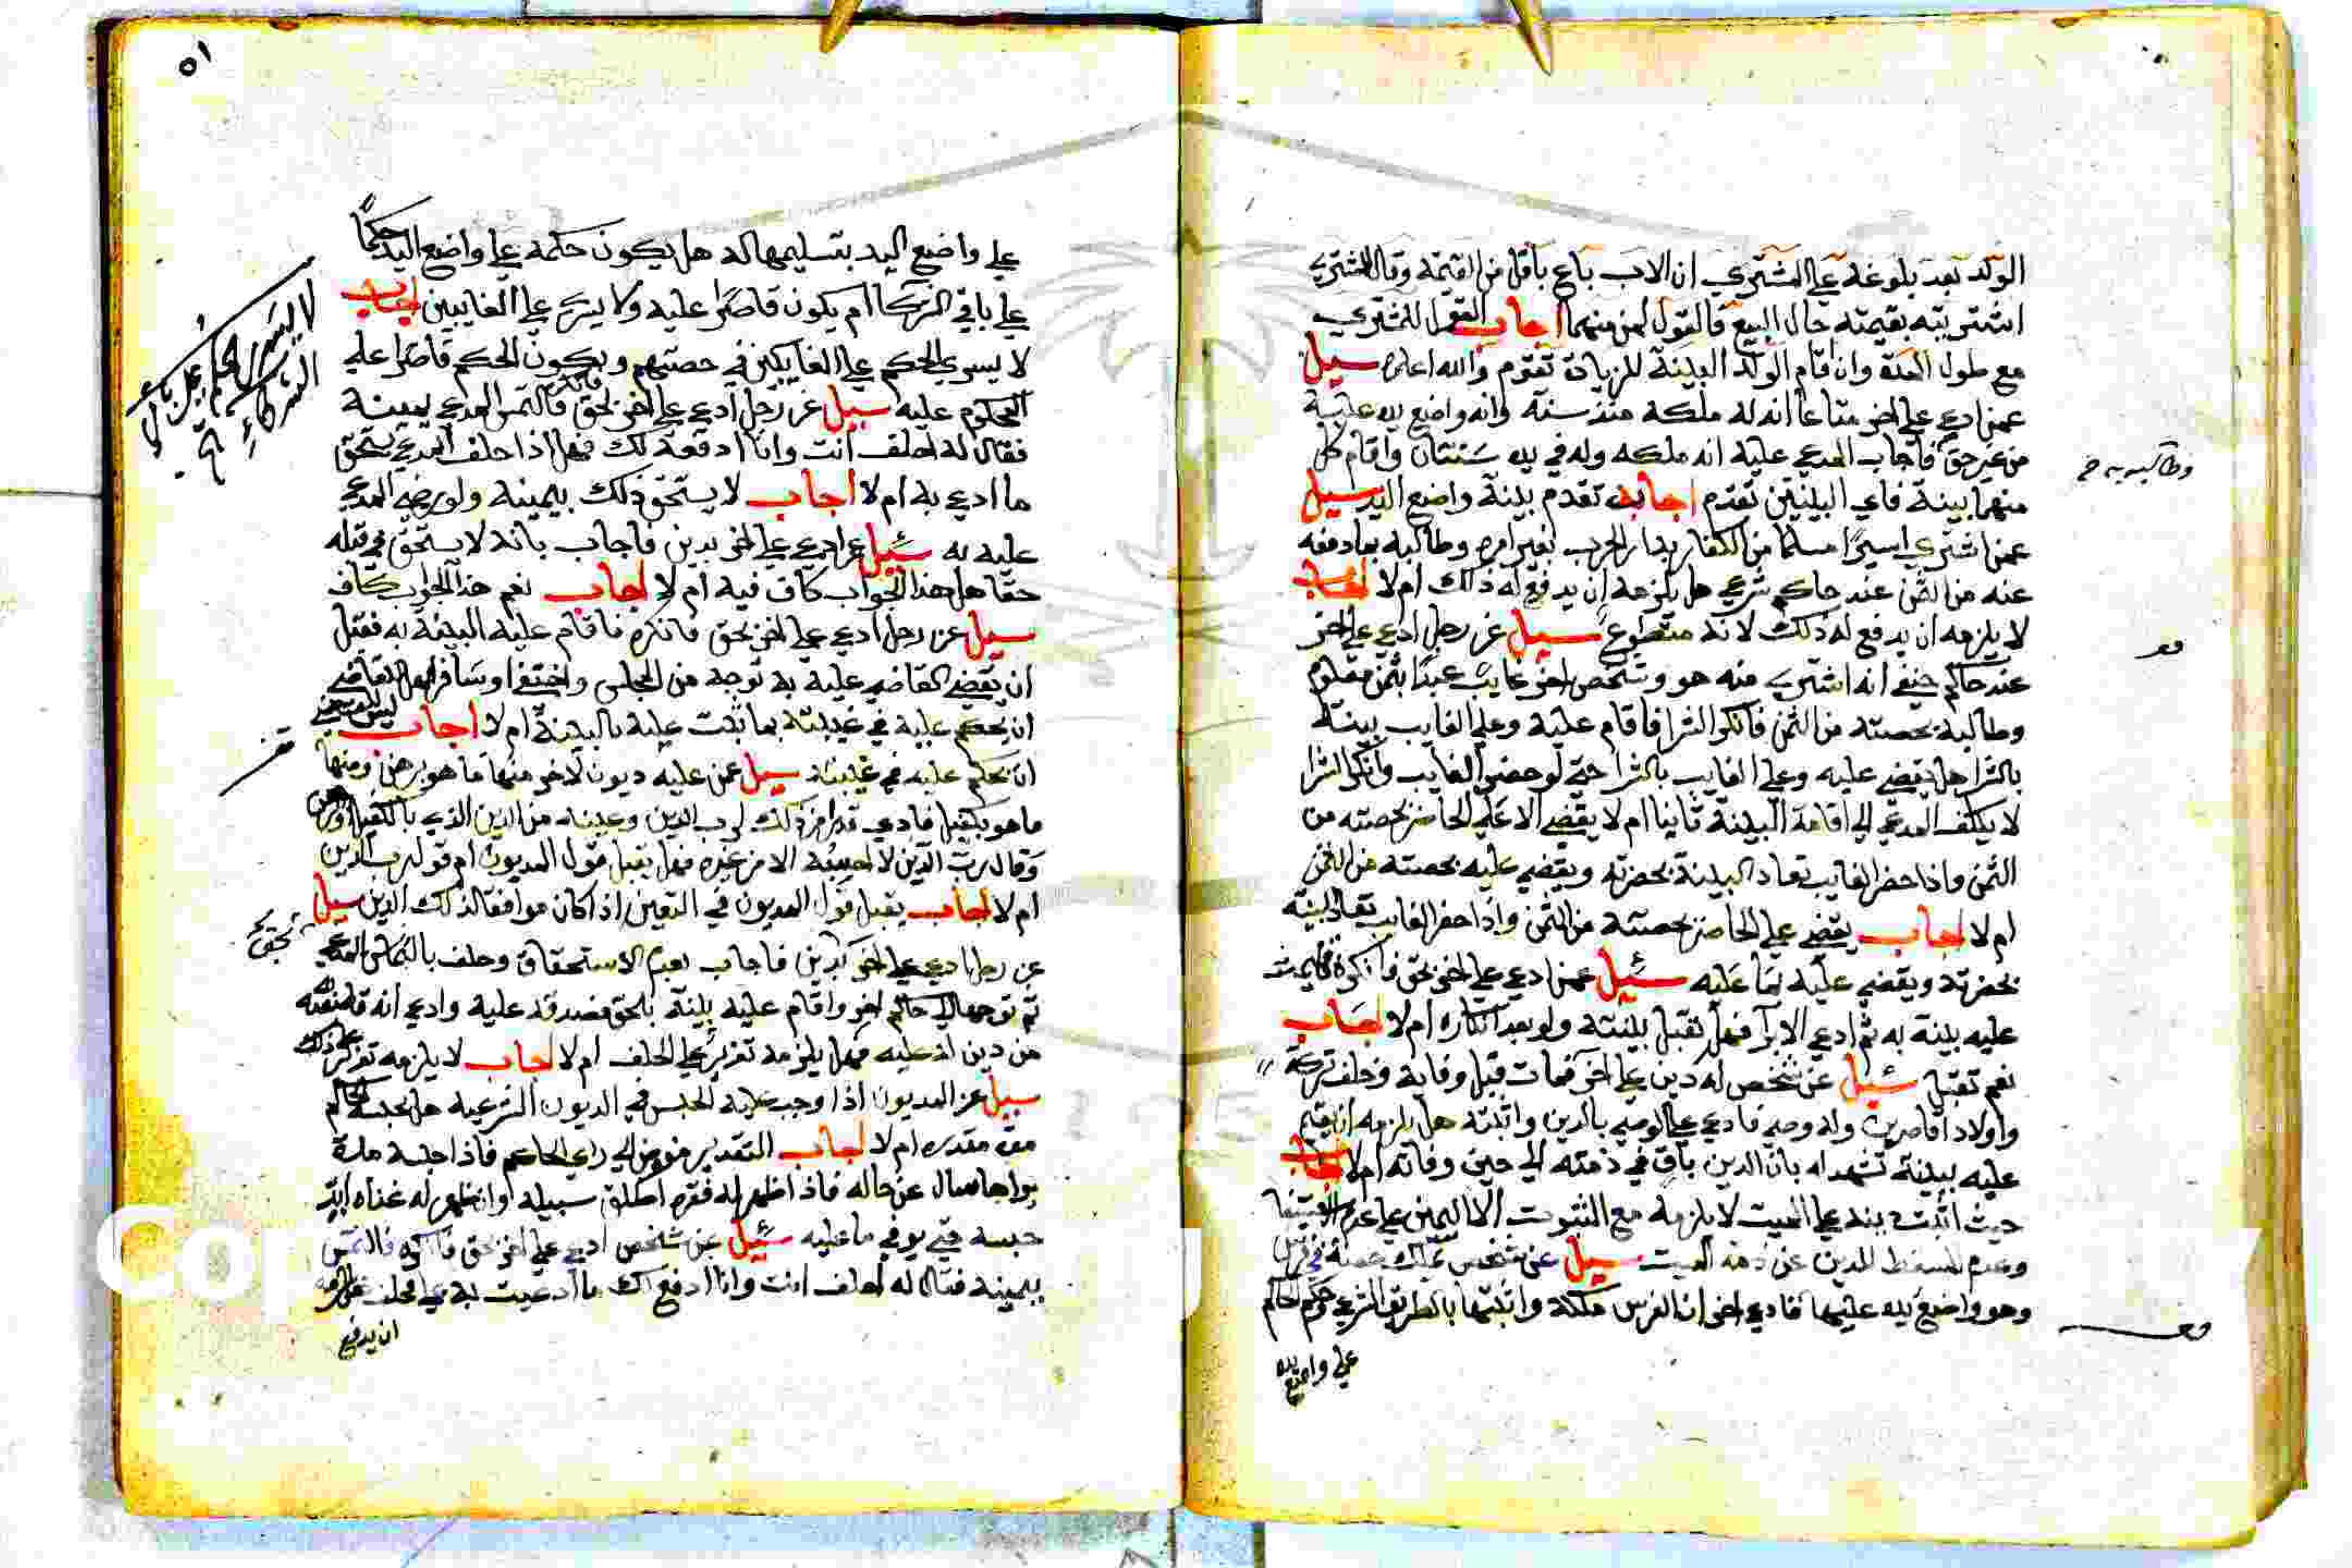 الولد بعد بلوغه علي المشتري ان الاب باع باقل من القيمة وقال المشتري
اشتريته بقيمته حال البيع فالقول لمن منهما اجاب القول للمشتري
مع طول المدة وان اقام الولد البينة للزيادة تقوم والله اعلم سيل
عمن ادعي علي اخر متاعا انه له ملكه منذ سنة وانه واضع يده عليه
من غير حق فاجاب المدعي عليه انه ملكه وله في يده سنتان واقام كل
منهما بينة فاي البينتين تقدم اجاب تقدم بينة واضع اليد سيل
عمن اشتري اسيرا مسلما من الكفار بدار الحرب بغير امره وطالبه بما دفعه
عنه من الثمن عند حاكم شرعي هل يلزمه ان يدفع له ذلك ام لا اجاب
لا يلزمه ان يدفع له ذلك لانه متطوع سيل عن رجل ادعي علي اخر
عند حاكم حنفي انه اشتري منه هو وشخص اخر غايب عبدا بثمن معلوم
وطالبه بحصته من الثمن فانكر الشرا فاقام عليه وعلي الغايب بينة
بالشرا هل يقضي عليه وعلي الغايب بالشرا حتي لو حضر الغايب وانكر الشرا
لا يكلف المدعي الي اقامة البينة ثانيا ام لا يقضي الا علي الحاضر بحصته من
الثمن واذا حضر الغايب تعاد البينة بحضرته ويقضي عليه بحصته من الثمن
ام لا اجاب يقضي علي الحاضر بحصته من الثمن واذا حضر الغايب تعاد البينة
بحضرته ويقضي عليه بما عليه سيل عمن ادعي علي اخر بحق فانكره فاقيمت
عليه بينة به ثم ادعي الابرآ فهل تقبل بينته ولو بعد انكاره ام لا اجاب
نعم تقبل سيل عن شخص له دين علي اخر فمات قبل وفايه وخلف تركة
واولادا قاصرين وله وصي فادعي علي الوصي بالدين واثبته هل يلزمه ان يقيم
عليه بينة تشهد له بان الدين باق في ذمته الي حين وفاته ام لا اجاب
حيث اثبت دينه علي الميت لا يلزمه مع الثبوت الا اليمين علي عدم الاستيفا
وعدم المسقط للدين عن ذمة الميت سيل عن شخص يملك حصة في فرس
وهو واضع يده عليها فادعي اخر ان الفرس ملكه واثبتها بالطريق الشرعي وحكم الحاكم
علي واضع يده
وطالبه به خ
٥١
علي واضع اليد بتسليمها له هل يكون حكمه علي واضع اليد حكما
علي باقي الشركا ام يكون قاصرا عليه ولا يسري علي الغايبين اجاب
لا يسري الحكم علي الغايبين في حصتهم ويكون الحكم قاصرا علي
المحكوم عليه سيل عن رجل ادعي علي اخر بحق فانكر فالتمس المدعي يمينه
فقال له احلف انت وانا ادفعه لك فهل اذا حلف المدعي يستحق
ما ادعي به ام لا اجاب لا يستحق ذلك بيمينه ولو رضي المدعي
عليه به سيل عن ادعي علي اخر بدين فاجاب بانه لا يستحق في قبله
حقا هل هذا الجواب كاف فيه ام لا اجاب نعم هذا الجواب كاف
سيل عن رجل ادعي علي اخر بحق فانكره فاقام عليه البينة به فقبل
ان يقضي القاضي عليه به توجه من المجلس واختفا او سافر فهل للقاضي
ان يحكم عليه في غيبته بما ثبت عليه بالبينة ام لا اجاب ليس للقاضي
ان يحكم عليه في غيبته سيل عمن عليه ديون لاخر منها ما هو برهن ومنها
ما هو بكفيل فادي قدرا من ذلك لرب الدين وعينه من الدين الذي بالكفيل او الرهن
وقال رب الدين لا احسبه الا من غيره فهل يقبل قول المديون ام قول رب الدين
ام لا اجاب يقبل قول المديون في التعين اذا كان موافقا لذلك الدين سيل
عن رجل ادعي علي اخر بدين فاجاب بعدم الاستحقاق وحلف بالتماس المدعي
ثم توجها الي حاكم اخر واقام عليه بينة بالحق فصدقه عليه وادعي انه قد نقصه
من دين له عليه فهل يلزمه تعزير علي الحلف ام لا اجاب لا يلزمه تعزير علي ذلك
سيل عن المديون اذا وجب عليه الحبس في الديون الشرعيه هل يحبسه الحاكم
مدة مقدره ام لا اجاب التقدير مفوض الي راي الحاكم فاذا حبسه مدة
يراها سال عن حاله فاذا ظهر له فقره اطلق سبيله وان ظهر له غناه ابد
حبسه حتي يوفي ما عليه سيل عن شخص ادعي علي اخر بحق فانكره فالتمس
يمينه فقال له احلف انت وانا ادفع لك ما ادعيت به علي فحلف هل يلزمه
ان يدفع
لا يسري الحكم علي باقي
الشركاء